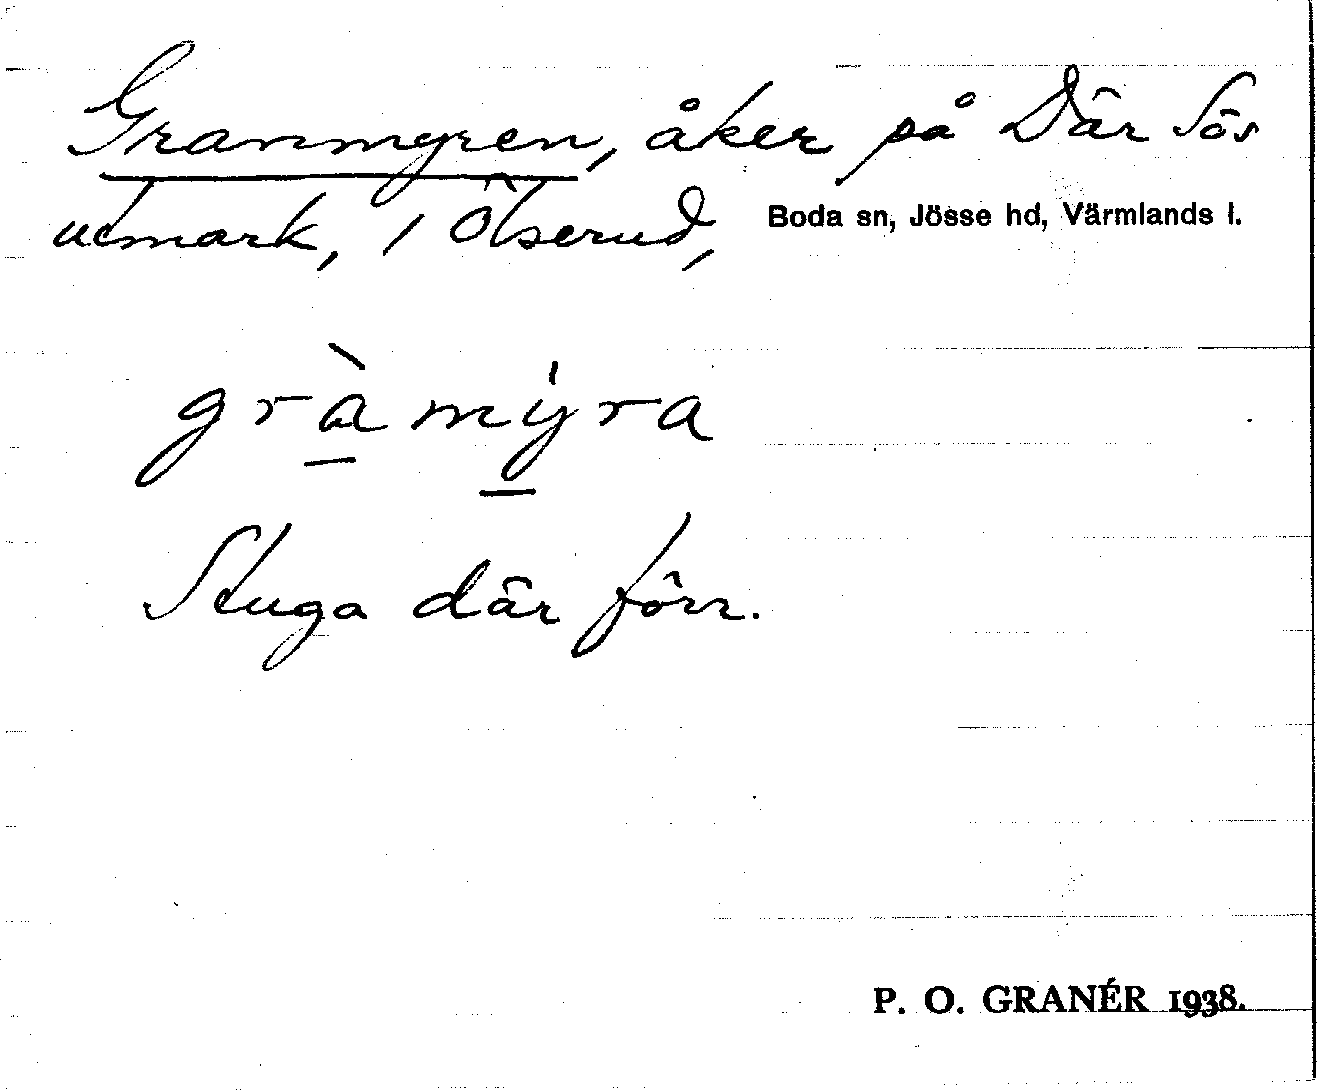 Granmyren, åker på Där Sös
utmark, 1 Ölserud, Boda sn, Jösse hd, Värmlands l.
gràmy̍ra
Stuga där förr.
P. O. GRANÉR 1938.